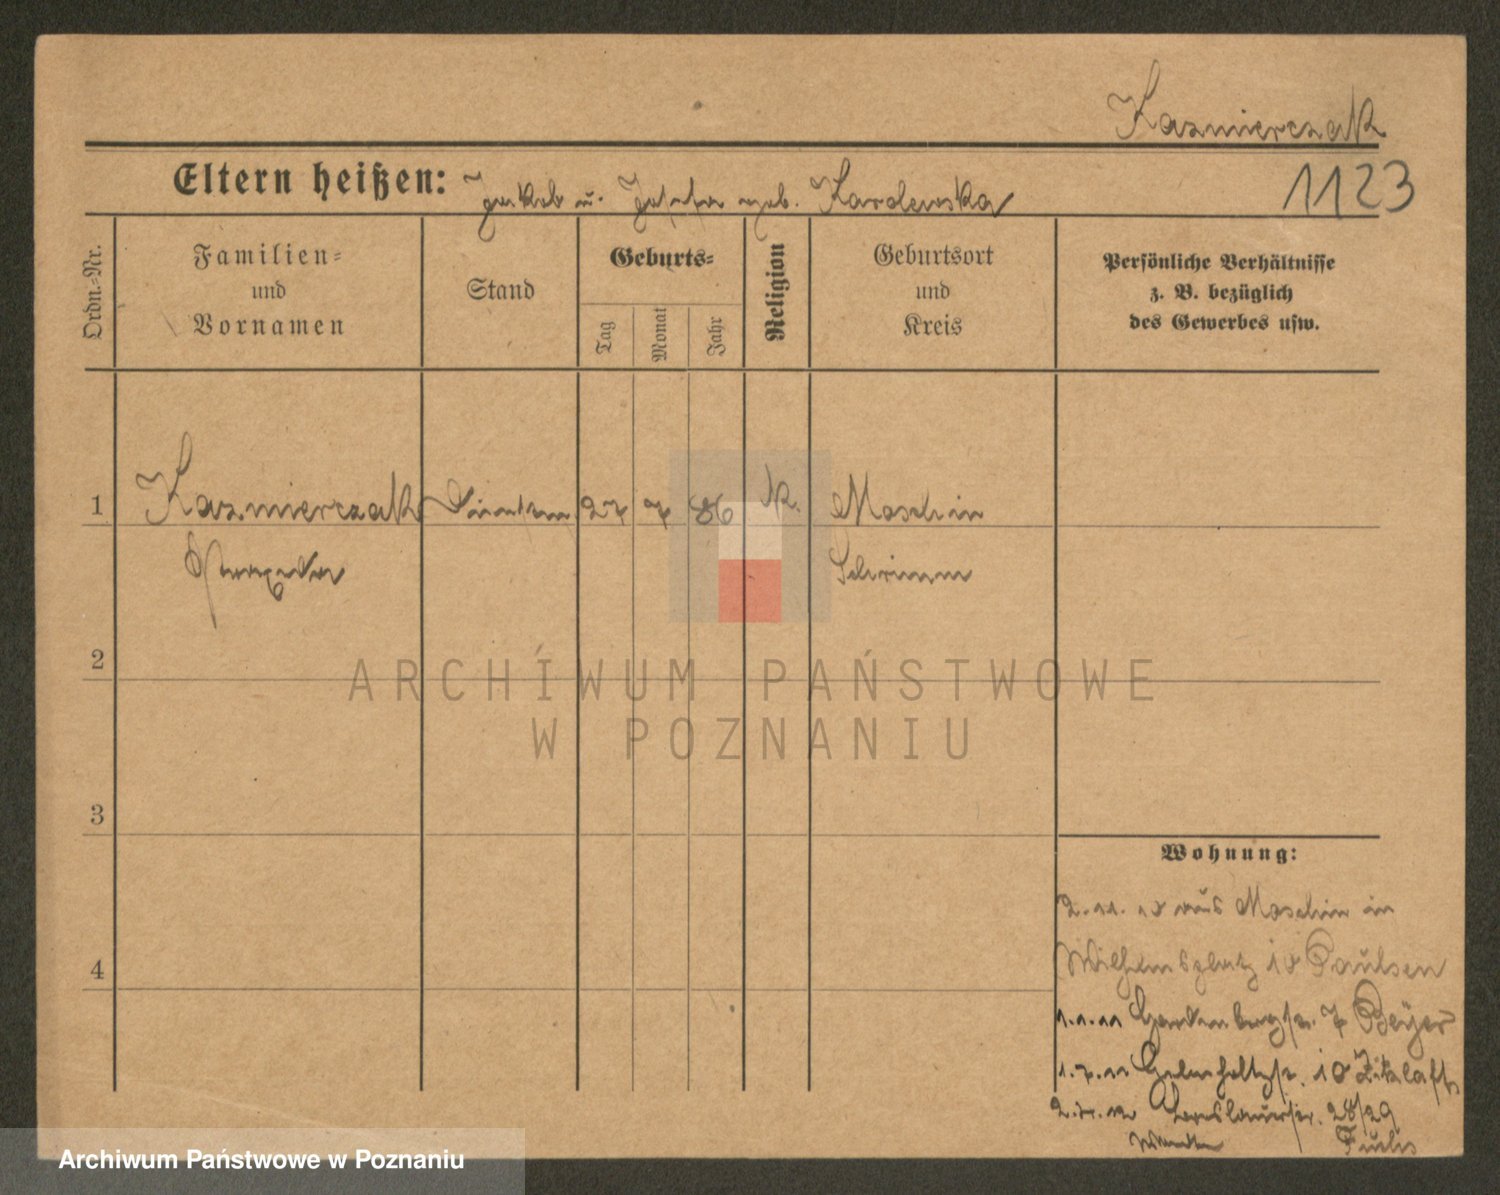 Kazmierczak
Eltern heißen: Jakob u. Josefa geb. Kardenska
1123
Ordn.-Nr.
Familien-
und
Vornamen
Stand
Geburts-
Tag
Monat
Jahr
Religion
Geburtsort
und
Kreis
Persönliche Verhältnisse
z. B. bezüglich
des Gewerbes usw.
1 Kazmierczak 27 7 86 K. Moschin
Schrimm
2
3
4
Wohnung:
2.11.10 aus Moschin in
Wilhelmsplatz 10 Paulsen
1.1.11 7 Beyer
1.7.11 10
Breslauerstr. 28/29
ARCHIWUM PAŃSTWOWE
W POZNANIU
Archiwum Państwowe w Poznaniu